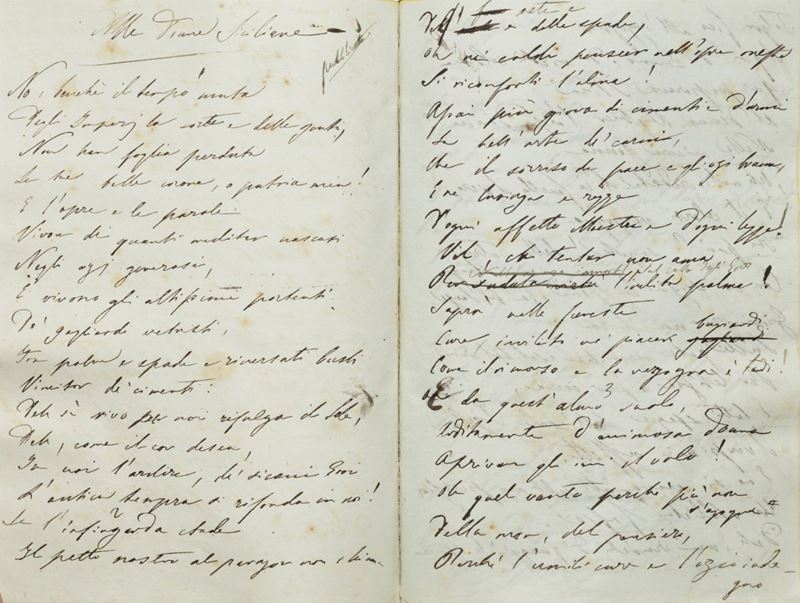 Alle Donne Siciliane
No, benchè il tempo muta
Degli Imperj la sorte e delle genti,
Non han foglia perduta
Le tue belle corone, o patria mia!
E l'opre e le parole
Vivon di quanti
Negli ozj generosi,
E vivono gli altissimi portenti
De' gagliardi vetusti,
Tra polve e spade e riversati busti
Vincitor de' cimenti:
Deh sì vivo per noi rifulga il Sole,
Deh, come il cor desia,
In noi l'ardire, de' sicani Eroi
L'antica tempra si rifonda in noi!
Se l'infingarda etade
Il petto nostro al paragon non chiama
e delle spade,
Oh ne' caldi pensier nell'opre oneste
Si riconforti l'alma!
Assai più giova di cimenti e d'armi
La bell'arte de' carmi,
Che il sorriso di pace e gli ozj brama,
E ne lusinga e regge
D'ogni affetto Maestra e d'ogni legge!
Vil chi tentar non ama
l'inclita palma!
Saprà nelle funeste
Cure invilito ne' piacer bugiardi
Come il rimorso e la vergogna è tardi!
Oh da quest'almo suolo,
Arditamente d'animosa donna
Aprivan gli inni il volo!
Oh quel vanto perchè più non s'agogna
Della man, del pensiero,
Perchè l'umili cure e l'ozio inde-
gno